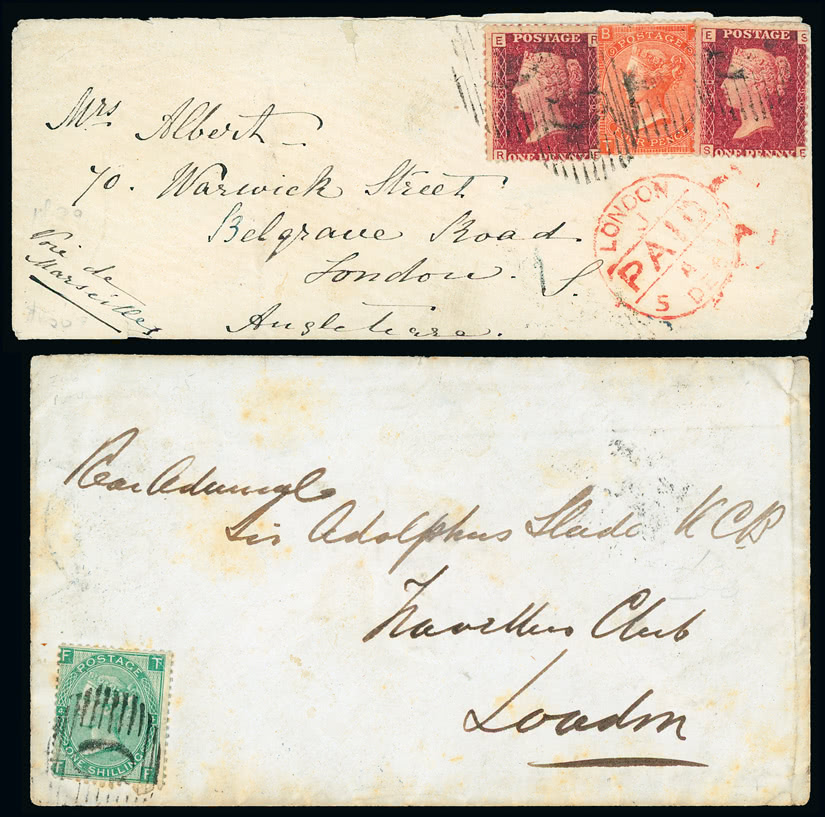 E R
POSTAGE
R E
ONE PENNY
B
POSTAGE
T
PENCE
E S
POSTAGE
S E
ONE PENNY
Mrs Albert
70. Warwick Street
Belgrave Road
London. S.
Angleterre.
Voie de
Marseilles
LONDON
PAID
5
DE
Rear Admiral
Sir Adolphus Slade KCB
Travellers Club
London
F T
POSTAGE
ONE SHILLING
T F